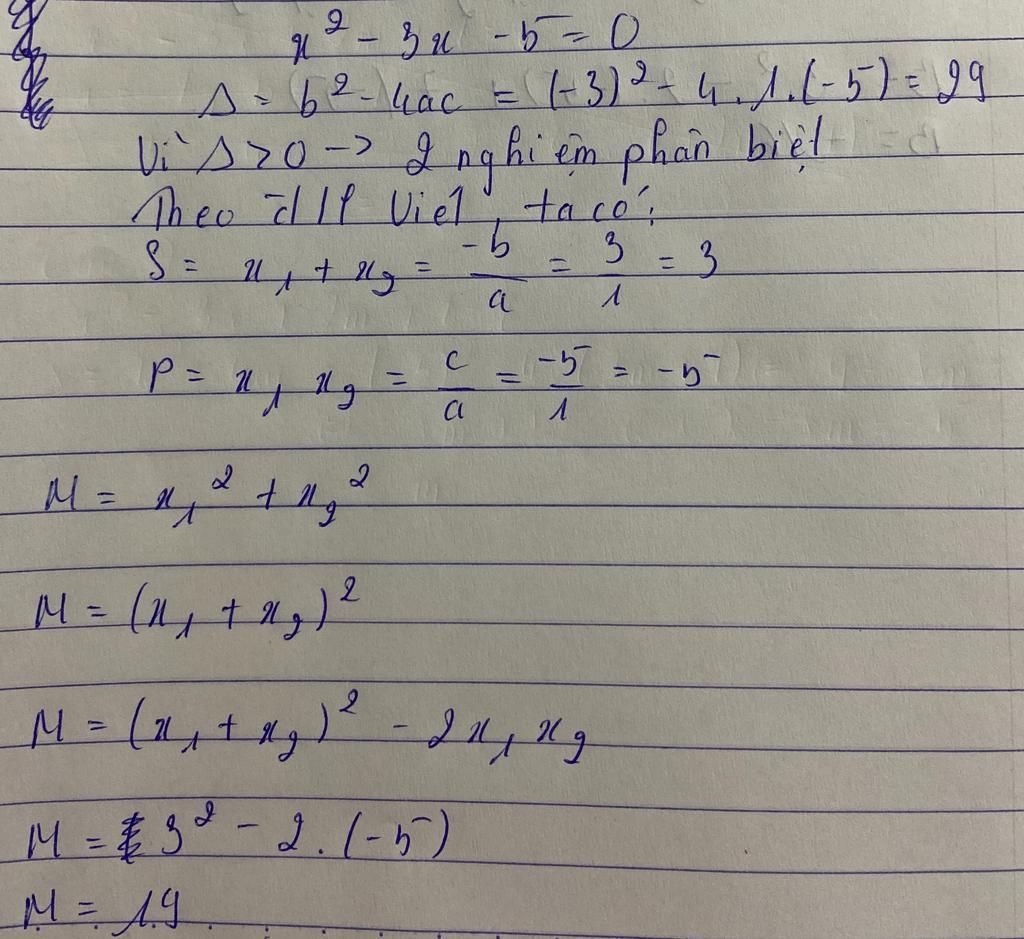 x² - 3x - 5 = 0
Δ = b² - 4ac = (-3)² - 4.1.(-5) = 29
Vì Δ > 0 -> 2 nghiệm phân biệt
Theo đ/l Viet, ta có:
S = x₁ + x₂ = -b/a = 3/1 = 3
P = x₁ x₂ = c/a = -5/1 = -5
M = x₁² + x₂²
M = (x₁ + x₂)²
M = (x₁ + x₂)² - 2x₁x₂
M = 3² - 2.(-5)
M = 19